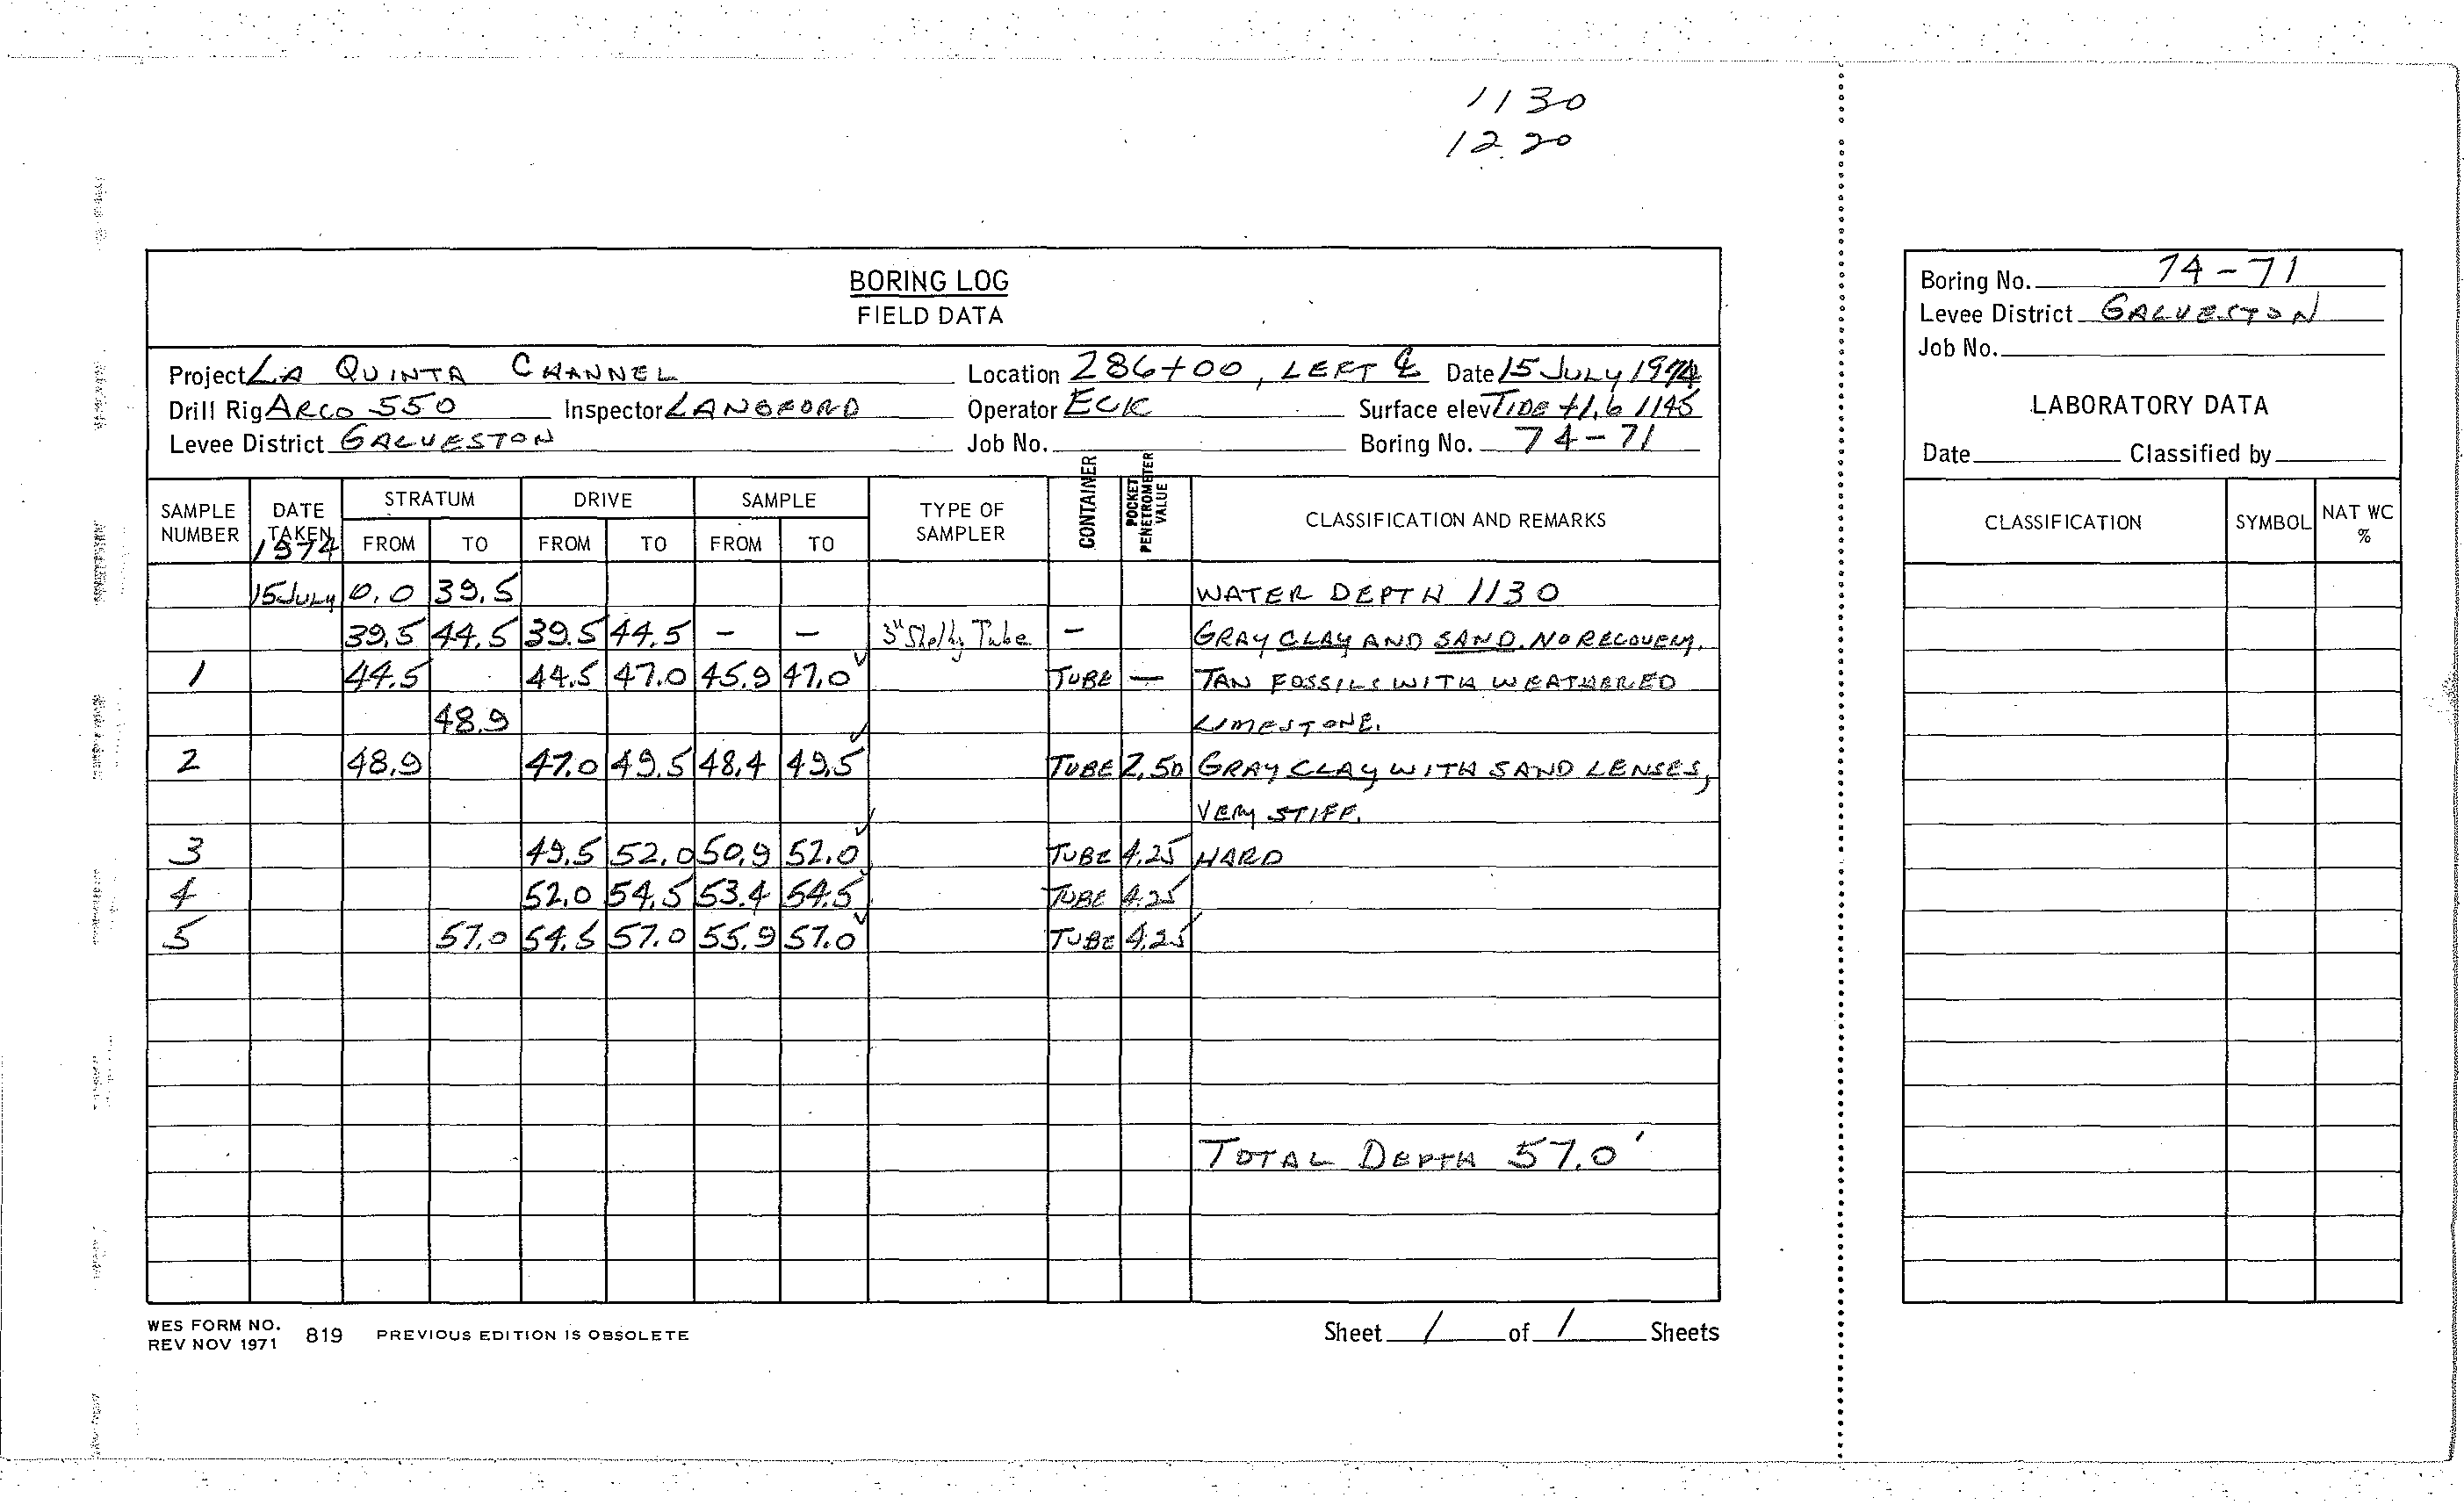 1130
1220
BORING LOG
FIELD DATA
Project LA QUINTA CHANNEL Location 286+00, LEFT ℄ Date 15 JULY 1974
Drill Rig ARCO 550 Inspector LANGFORD Operator ECK Surface elev TIDE +1.6 1145
Levee District GALVESTON Job No. Boring No. 74-71
SAMPLE NUMBER DATE TAKEN 1974 STRATUM FROM TO DRIVE FROM TO SAMPLE FROM TO TYPE OF SAMPLER CONTAINER POCKET PENETROMETER VALUE CLASSIFICATION AND REMARKS
15 JULY 0.0 39.5 WATER DEPTH 1130
39.5 44.5 39.5 44.5 - - 3" Shelby Tube - GRAY CLAY AND SAND. NO RECOVERY.
1 44.5 44.5 47.0 45.9 47.0 ✓ TUBE - TAN FOSSILS WITH WEATHERED
48.9 LIMESTONE.
2 48.9 47.0 49.5 48.4 49.5 ✓ TUBE 2.50 GRAY CLAY WITH SAND LENSES,
VERY STIFF.
3 49.5 52.0 50.9 52.0 ✓ TUBE 4.25 HARD
4 52.0 54.5 53.4 54.5 TUBE 4.25
5 57.0 54.5 57.0 55.9 57.0 ✓ TUBE 4.25
TOTAL DEPTH 57.0'
WES FORM NO. 819 PREVIOUS EDITION IS OBSOLETE
REV NOV 1971
Sheet 1 of 1 Sheets
Boring No. 74-71
Levee District GALVESTON
Job No.
LABORATORY DATA
Date Classified by
CLASSIFICATION SYMBOL NAT WC %